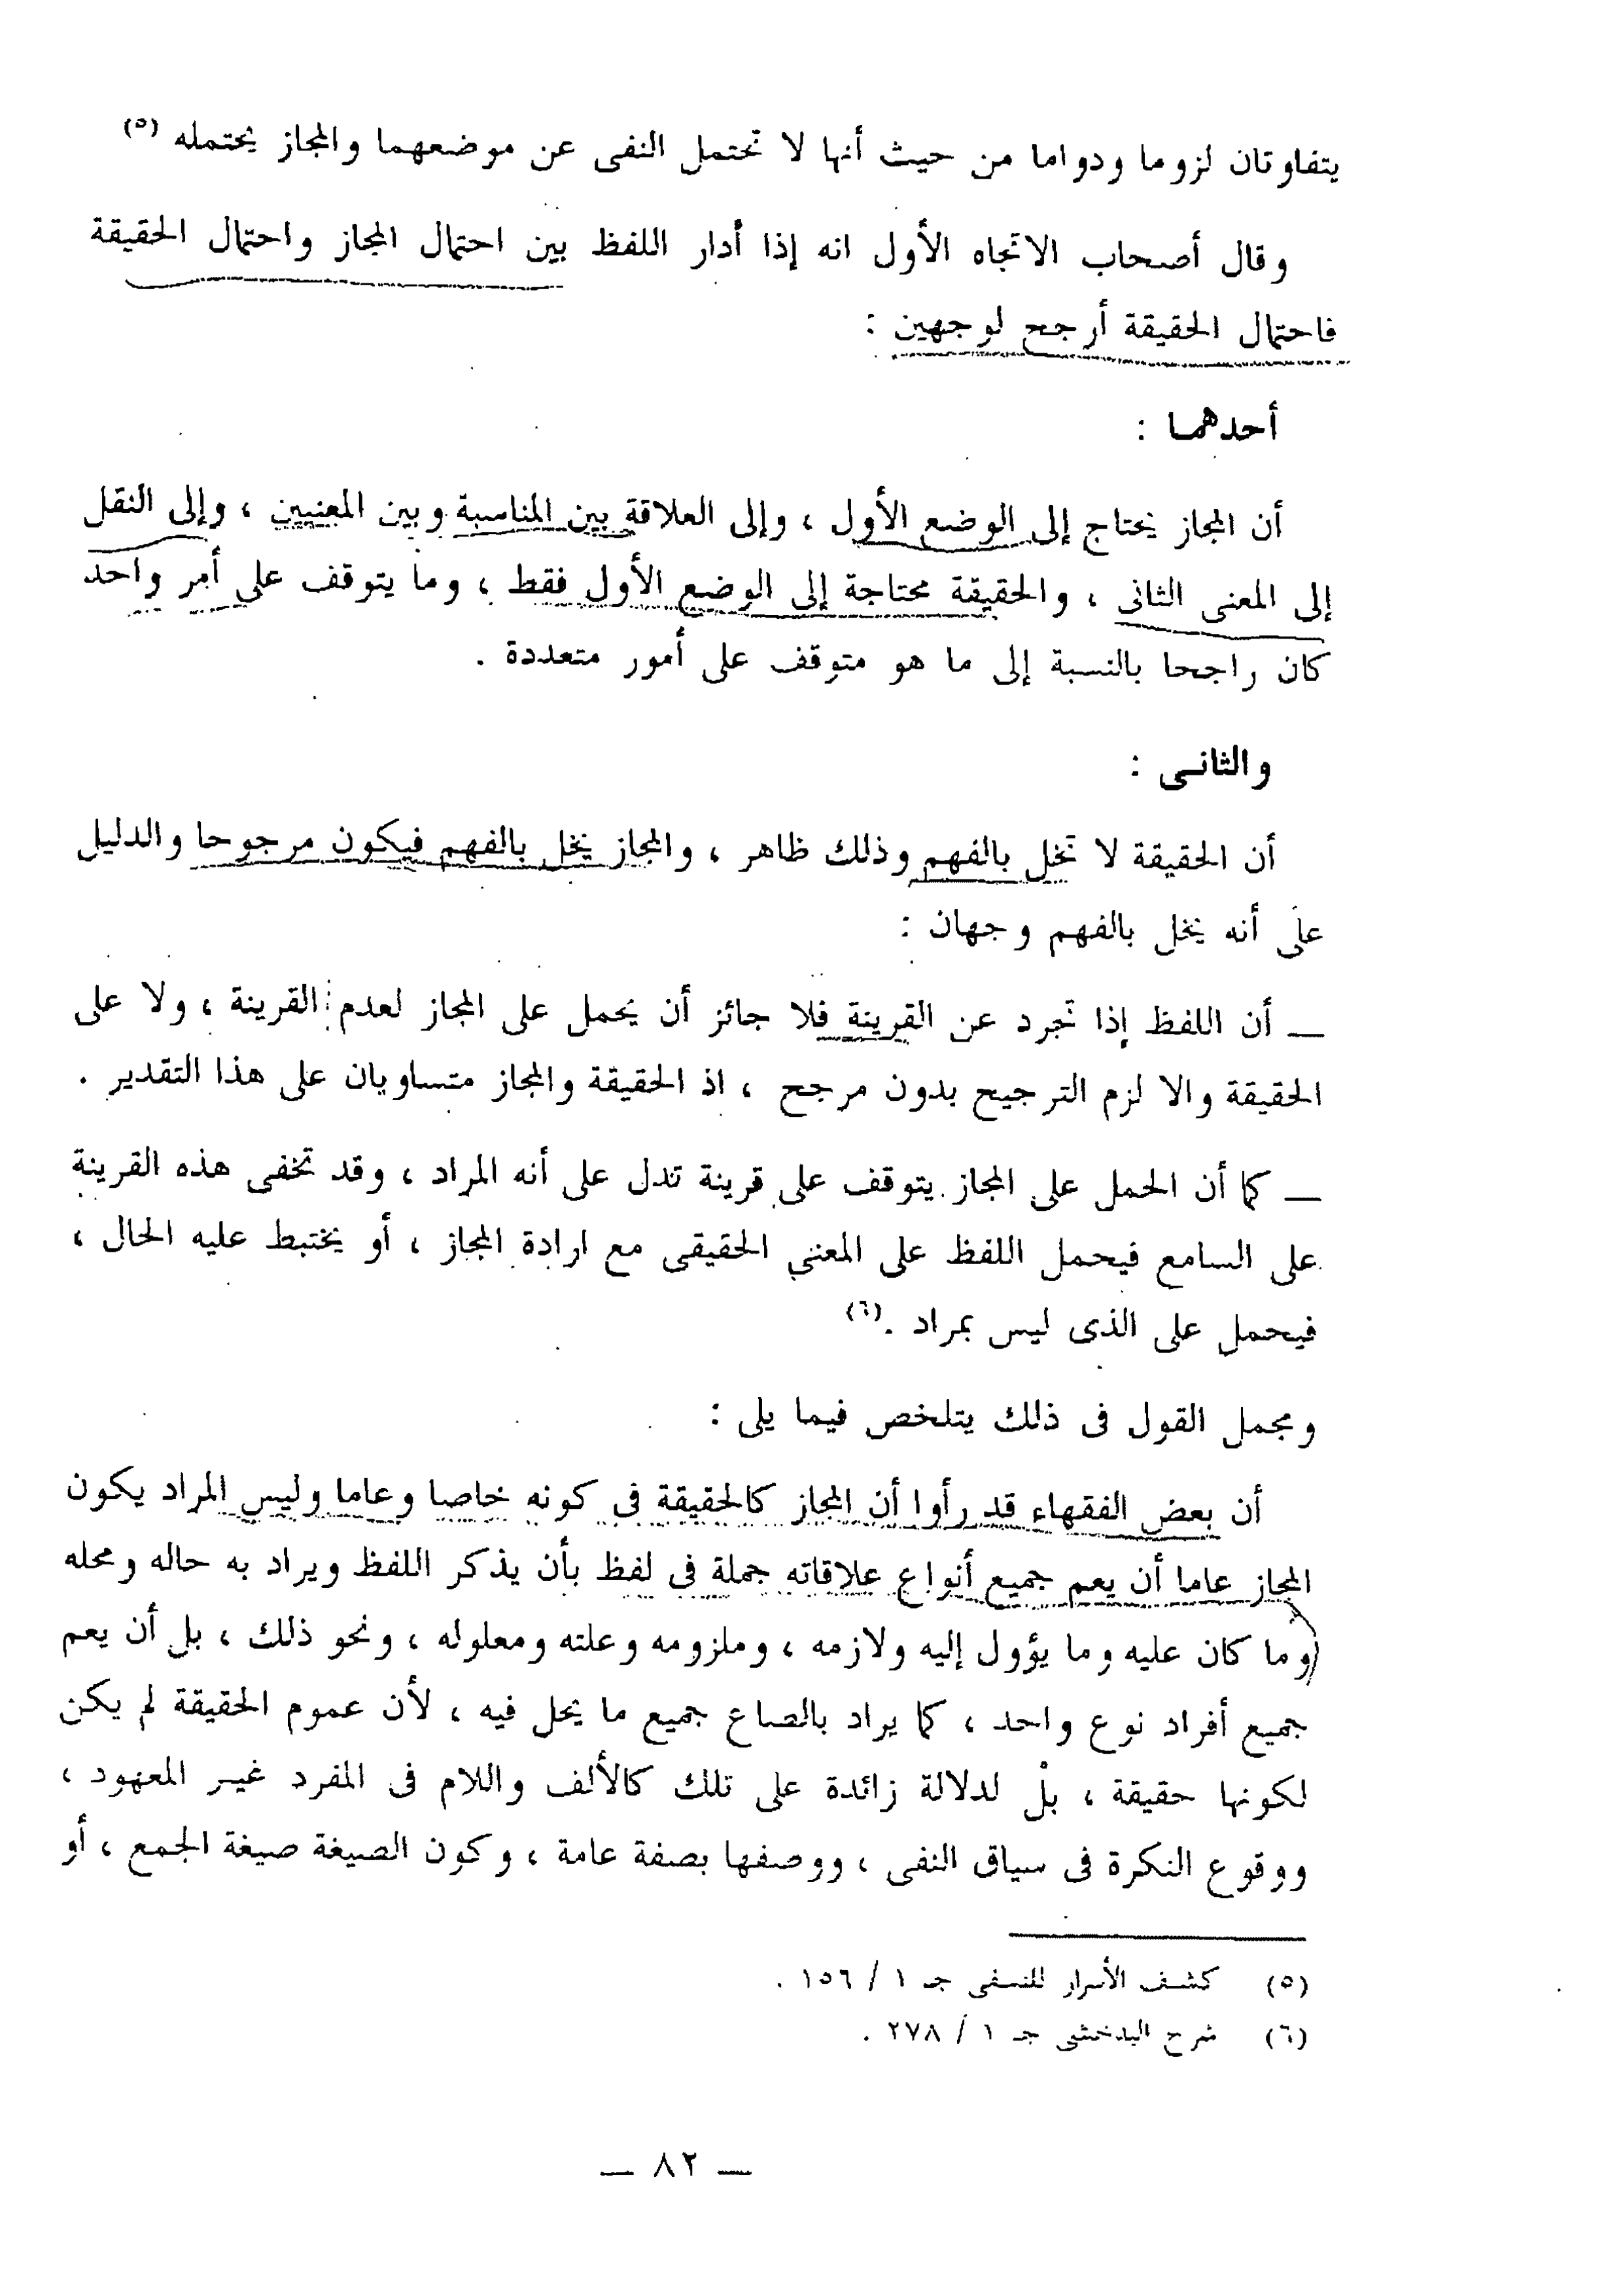 يتفاوتان لزوما ودواما من حيث أنها لا تحتمل النفى عن موضعهما والمجاز يحتمله (٥)
وقال أصحاب الاتجاه الأول انه إذا أدار اللفظ بين احتمال المجاز واحتمال الحقيقة
فاحتمال الحقيقة أرجح لوجهين :
أحدهما :
أن المجاز يحتاج إلى الوضع الأول ، وإلى العلاقة بين المناسبة وبين المعنيين ، وإلى النقل
إلى المعنى الثانى ، والحقيقة محتاجة إلى الوضع الأول فقط ، وما يتوقف على أمر واحد
كان راجحا بالنسبة إلى ما هو متوقف على أمور متعددة .
والثانى :
أن الحقيقة لا تخل بالفهم وذلك ظاهر ، والمجاز يخل بالفهم فيكون مرجوحا والدليل
على أنه يخل بالفهم وجهان :
— أن اللفظ إذا تجرد عن القرينة فلا جائز أن يحمل على المجاز لعدم القرينة ، ولا على
الحقيقة والا لزم الترجيح بدون مرجح ، اذ الحقيقة والمجاز متساويان على هذا التقدير .
— كما أن الحمل على المجاز يتوقف على قرينة تدل على أنه المراد ، وقد تخفى هذه القرينة
على السامع فيحمل اللفظ على المعنى الحقيقى مع ارادة المجاز ، أو يختبط عليه الحال ،
فيحمل على الذى ليس بمراد .(٦)
ومجمل القول فى ذلك يتلخص فيما يلى :
أن بعض الفقهاء قد رأوا أن المجاز كالحقيقة فى كونه خاصا وعاما وليس المراد يكون
المجاز عاما أن يعم جميع أنواع علاقاته جملة فى لفظ بأن يذكر اللفظ ويراد به حاله ومحله
وما كان عليه وما يؤول إليه ولازمه ، وملزومه وعلته ومعلوله ، ونحو ذلك ، بل أن يعم
جميع أفراد نوع واحد ، كما يراد بالصاع جميع ما يحل فيه ، لأن عموم الحقيقة لم يكن
لكونها حقيقة ، بل لدلالة زائدة على تلك كالألف واللام فى المفرد غير المعهود ،
ووقوع النكرة فى سياق النفى ، ووصفها بصفة عامة ، وكون الصيغة صيغة الجمع ، أو
(٥) كشف الأسرار للنسفى جـ ١ / ١٥٦ .
(٦) شرح البدخشى جـ ١ / ٢٧٨ .
— ٨٢ —